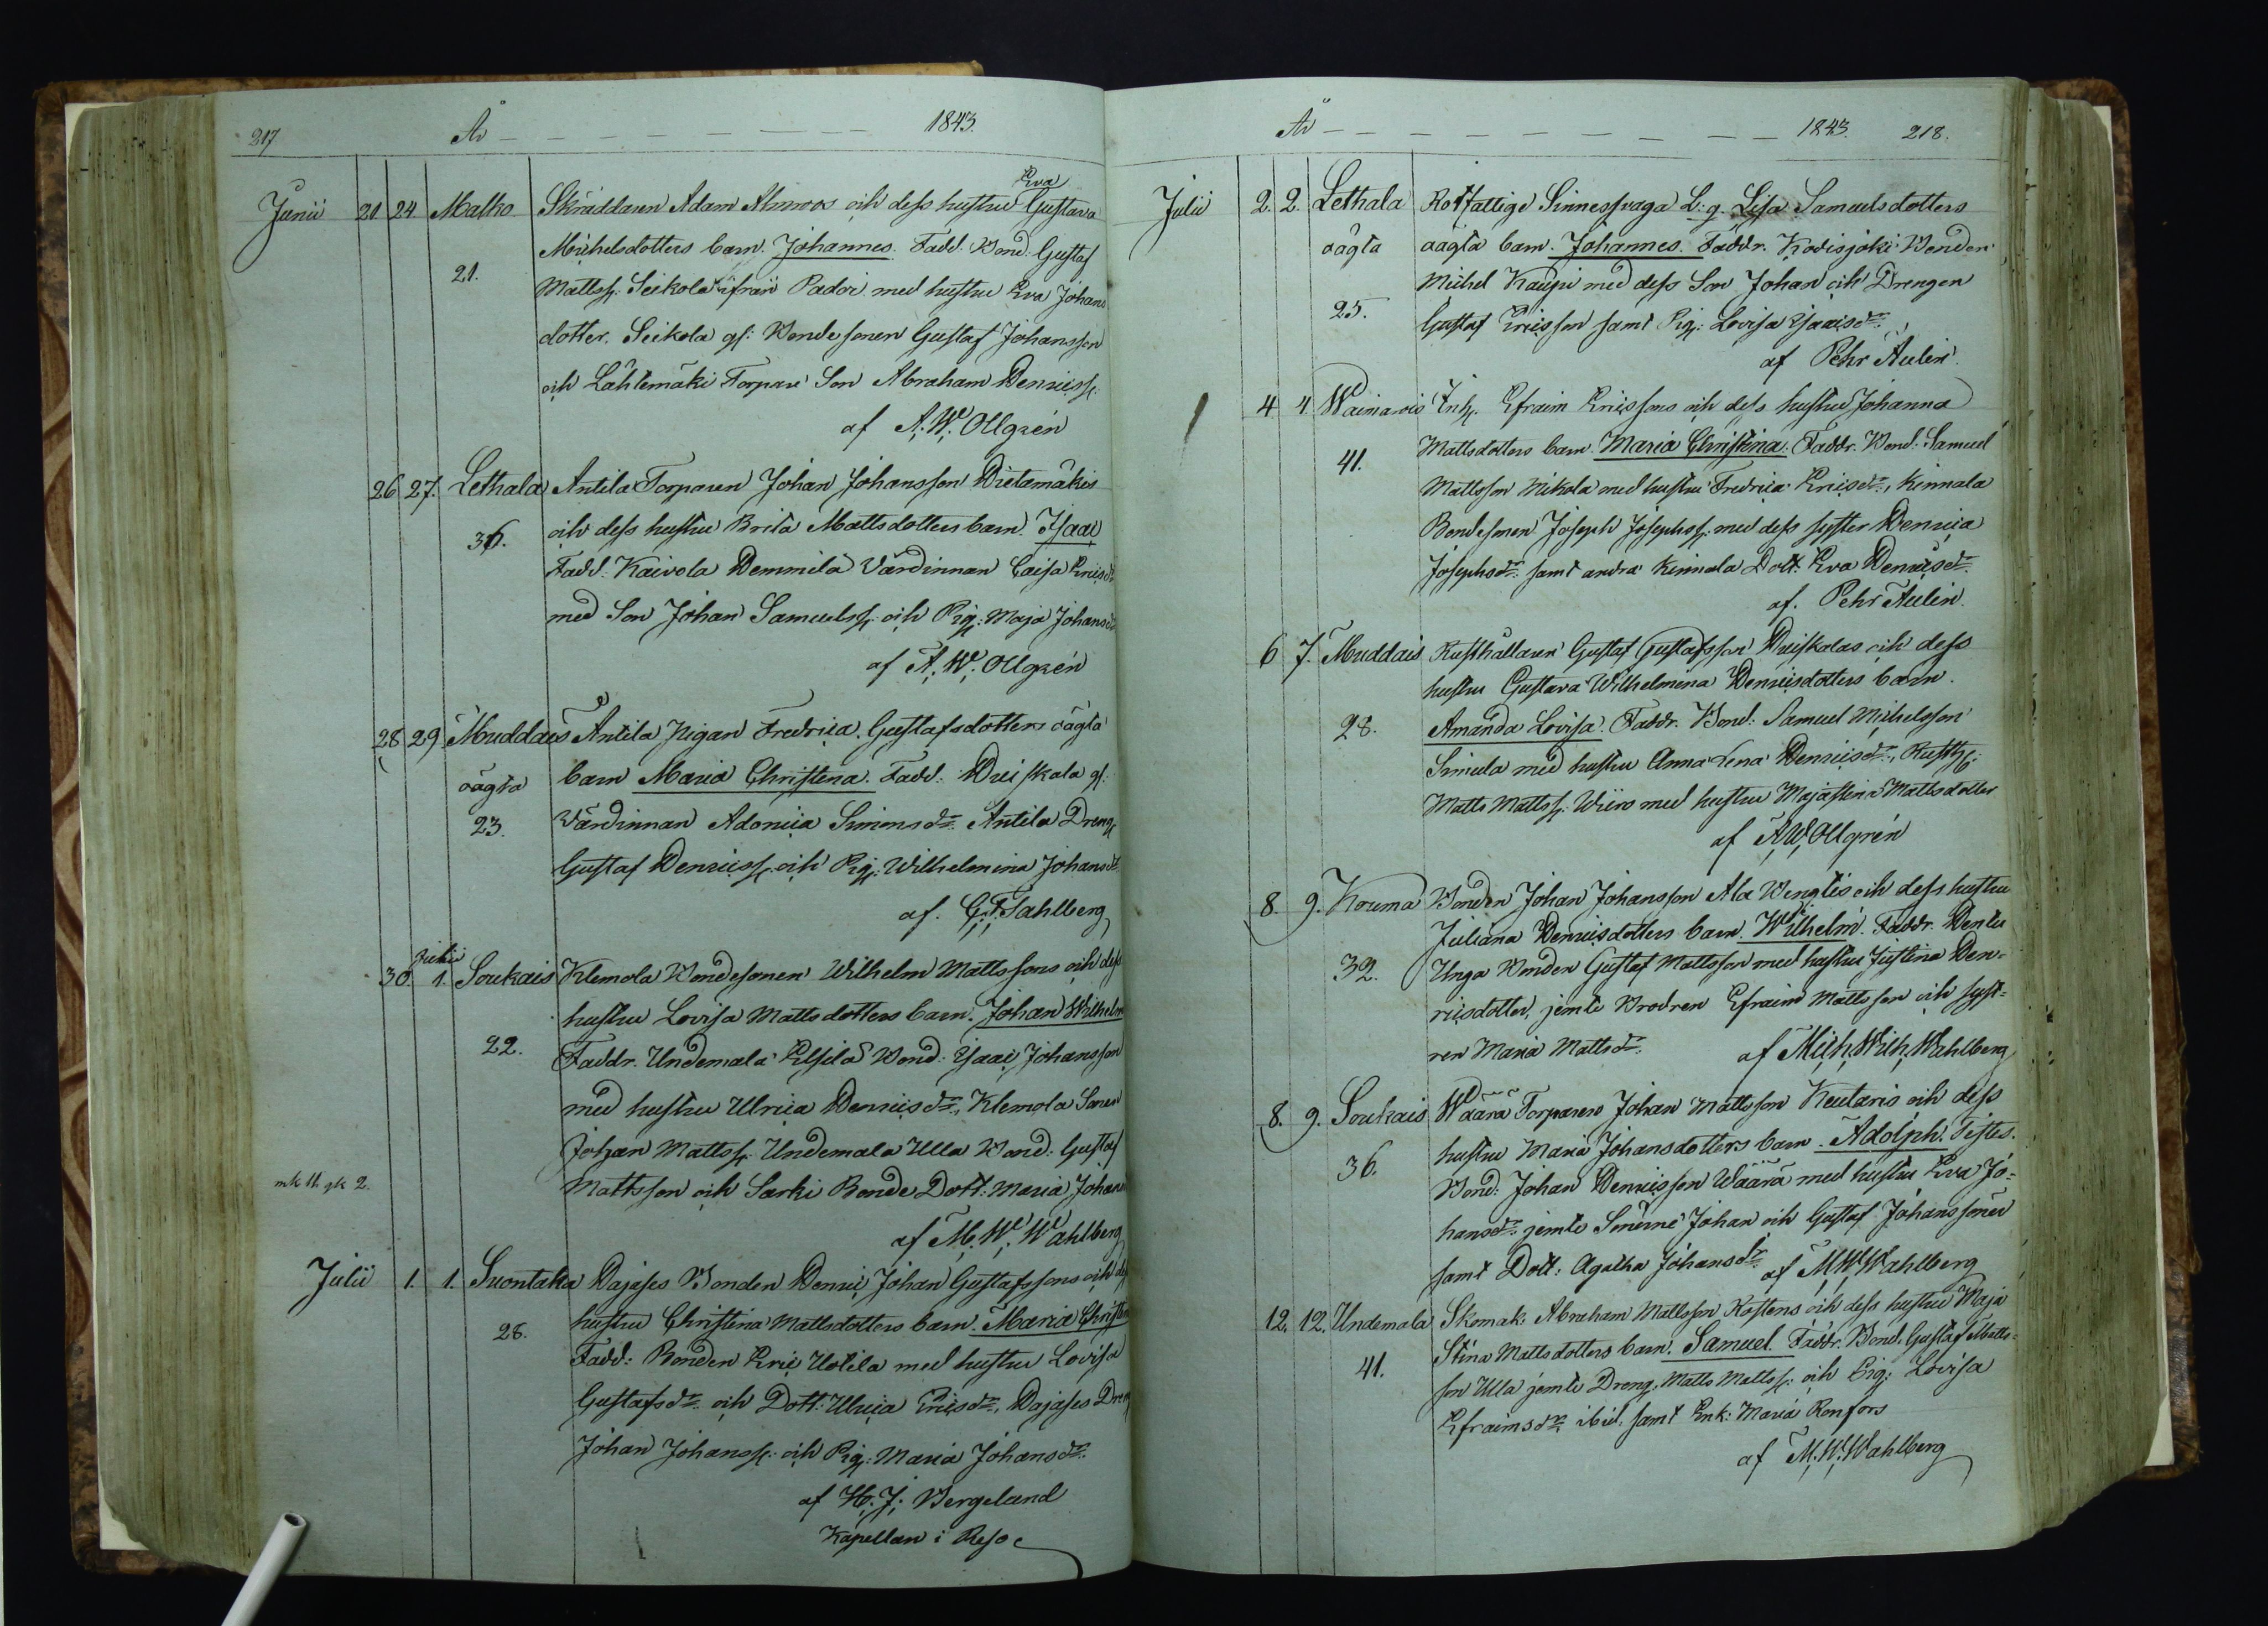 217 År 1843.
Junii 21 24 Malko Skräddaren Adam Almroos och dess hustru Eva Gustava
Michelsdotters barn. Johannes. Fadd. Bond. Gustaf
21.
Mattss. Seikola ifrån Padoi med hustru Eva Johans
dotter. Seikola gl: Bondesonen Gustaf Johansson
och Lähtemäki Torpare Son Abraham Henricss.
af A. W. Ollgrén
26 27. Lethala Antila Torparen Johan Johansson Hietamäkis
och dess hustru Brita Mattsdotters barn. Isaac
36.
Fadd. Kaivola Hemmilä Värdinnan Caisa Ericsdr
med Son Johan Samuelss. och Pig. Maja Johansdr
af A. W. Ollgrén
28 29 Muddais Antila Pigan Fredrica Gustafsdotters oägta
oägta barn Maria Christina. Fadd. Heiskala gl.
23. Värdinnan Adonicia Simonsdr. Antila Dreng
Gustaf Henricss. och Pig. Wilhelmina Johansdr
af. G. F. Sahlberg
Julii
30. 1. Soukais Klemola Bondesonen Wilhelm Mattssons och dess
hustru Lovisa Mattsdotters barn. Johan Wilhelm
22. Faddr. Undemala Elfsilä Bond. Isaac Johansson
med hustru Ulrica Henricsdr, Klemola Sonen
Johan Mattss. Undemala Ulla Bond. Gustaf
mk 11. gk 2. Mattsson och Sarki Bonde Dott: Maria Johans
af M. W. Wahlberg
Julii 1. 1. Suontaka Pajases Bonden Henric Johan Gustafssons och dess
hustru Christina Mattsdotters barn. Maria Christina
28. Fadd: Bonden Eric Uotila med hustru Lovisa
Gustafsdr. och Dott: Ulrica Ericsdr, Pajases Dreng
Johan Johanss. och Pig. Maria Johansdr.
af H. J. Bergelund
Kapellan i Reso
År 1843. 218.
Julii 2. 2. Lethala Rotfattige Sinnessvaga L: q. Lisa Samuelsdotters
oägta oägta barn. Johannes. Faddr. Kodisjoki Bonden
Michel Kaupi med dess Son Johan och Drengen
25. Gustaf Ericsson samt Pig: Lovisa Isaacsdr.
af Pehr Aulin.
4 4 Wainarois Inh. Efraim Ericssons och dess hustru Johanna
41. Mattsdotters barn. Maria Christina. Faddr. Bond: Samuel
Mattsson Mikola med hustru Fredrica Ericsdr., Kinnala
Bondesonen Joseph Josephss. med dess syster Henrica
Josephsdr: samt andra Kinnala Dott: Eva Henricsdr.
af. Pehr Aulin.
6 7. Muddais Rusthållaren Gustaf Gustafsson Heiskalas och dess
hustru Gustava Wilhelmina Henricsdotters barn.
28. Amanda Lovisa. Faddr. Bond: Samuel Michelsson
Simula med hustru Anna Lena Henricsdr., Rusth.
Matts Mattss. Wiiro med hustru Majastina Mattsdotter
af A W Ollgrén
8. 9. Kouma Bonden Johan Johansson Ala Wenglis och dess hustru
Juliana Henricsdotters barn. Wilhelm. Faddr. Pentti
32. Unga Bonden Gustaf Mattsson med hustru Justina Hen-
ricsdotter, jemte Brodren Efraim Mattsson och syst-
ren Maria Mattsdr. af Mich. Wilh. Wahlberg
8. 9. Soukais Wäärä Torparen Johan Mattsson Keutaris och dess
hustru Maria Johansdotters barn. Adolph. Testes.
36. Bond: Johan Henricsson Wäärä med hustru Eva Jo-
hansdr. jemte Sönerne Johan och Gustaf Johanssöner
samt Dott: Agatha Johansdr. af M W Wahlberg
12. 12. Undemala Skomak: Abraham Mattsson Rostens och dess hustru Maja
Stina Mattsdotters barn. Samuel. Faddr. Bond. Gustaf Matts-
41. son Ulla jemte Dreng. Matts Mattss. och Pig: Lovisa
Efraimsdr. ibid. samt Enk: Maria Renfors
af M. W. Wahlberg